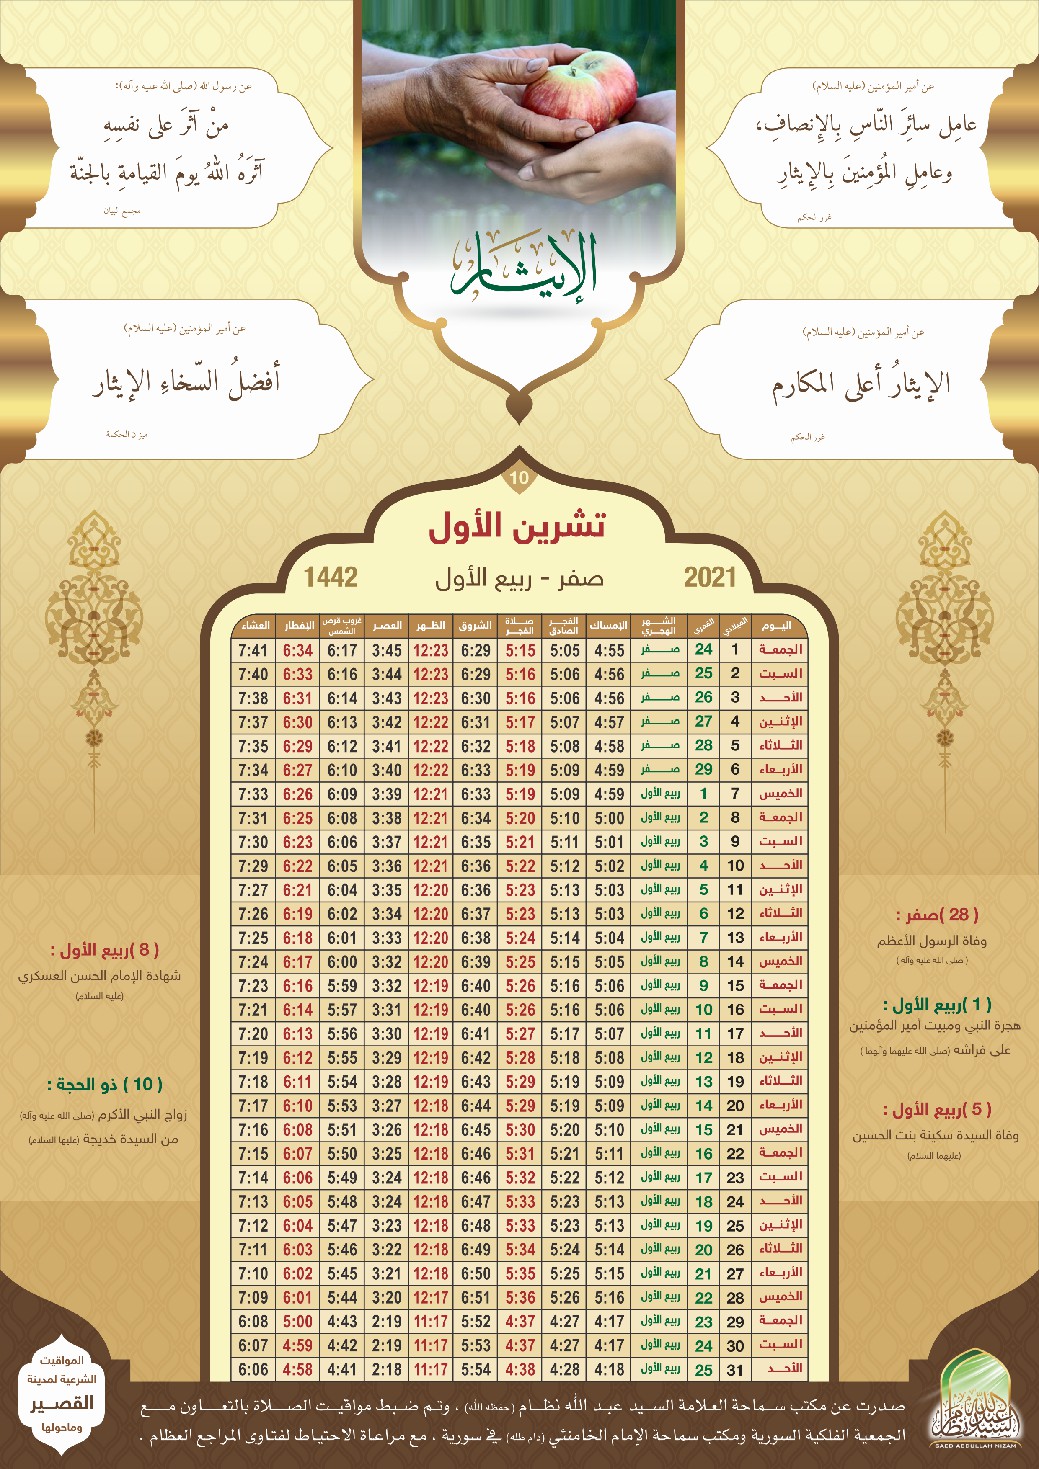 عن أمير المؤمنين (عليه السلام)
عامِل سائرَ النّاسِ بِالإنصافِ،
وعامِلِ المُؤمِنينَ بِالإيثارِ
غرر الحكم
عن رسول الله (صلى الله عليه وآله):
منْ آثرَ على نفسِهِ
آثرَهُ اللهُ يومَ القيامةِ بالجنّة
مجمع البيان
الإيثار
عن أمير المؤمنين (عليه السلام)
الإيثارُ أعلى المكارم
غرر الحكم
عن أمير المؤمنين (عليه السلام)
أفضلُ السّخاءِ الإيثار
ميزان الحكمة
10
تشرين الأول
2021 صفر - ربيع الأول 1442
اليوم الميلادي القمري الشهر الهجري الإمساك الفجر الصادق صلاة الفجر الشروق الظهر العصر غروب قرص الشمس الإفطار العشاء
الجمعة 1 24 صفر 4:55 5:05 5:15 6:29 12:23 3:45 6:17 6:34 7:41
السبت 2 25 صفر 4:56 5:06 5:16 6:29 12:23 3:44 6:16 6:33 7:40
الأحد 3 26 صفر 4:56 5:06 5:16 6:30 12:23 3:43 6:14 6:31 7:38
الإثنين 4 27 صفر 4:57 5:07 5:17 6:31 12:22 3:42 6:13 6:30 7:37
الثلاثاء 5 28 صفر 4:58 5:08 5:18 6:32 12:22 3:41 6:12 6:29 7:35
الأربعاء 6 29 صفر 4:59 5:09 5:19 6:33 12:22 3:40 6:10 6:27 7:34
الخميس 7 1 ربيع الأول 4:59 5:09 5:19 6:33 12:21 3:39 6:09 6:26 7:33
الجمعة 8 2 ربيع الأول 5:00 5:10 5:20 6:34 12:21 3:38 6:08 6:25 7:31
السبت 9 3 ربيع الأول 5:01 5:11 5:21 6:35 12:21 3:37 6:06 6:23 7:30
الأحد 10 4 ربيع الأول 5:02 5:12 5:22 6:36 12:21 3:36 6:05 6:22 7:29
الإثنين 11 5 ربيع الأول 5:03 5:13 5:23 6:36 12:20 3:35 6:04 6:21 7:27
الثلاثاء 12 6 ربيع الأول 5:03 5:13 5:23 6:37 12:20 3:34 6:02 6:19 7:26
الأربعاء 13 7 ربيع الأول 5:04 5:14 5:24 6:38 12:20 3:33 6:01 6:18 7:25
الخميس 14 8 ربيع الأول 5:05 5:15 5:25 6:39 12:20 3:32 6:00 6:17 7:24
الجمعة 15 9 ربيع الأول 5:06 5:16 5:26 6:40 12:19 3:32 5:59 6:16 7:23
السبت 16 10 ربيع الأول 5:06 5:16 5:26 6:40 12:19 3:31 5:57 6:14 7:21
الأحد 17 11 ربيع الأول 5:07 5:17 5:27 6:41 12:19 3:30 5:56 6:13 7:20
الإثنين 18 12 ربيع الأول 5:08 5:18 5:28 6:42 12:19 3:29 5:55 6:12 7:19
الثلاثاء 19 13 ربيع الأول 5:09 5:19 5:29 6:43 12:19 3:28 5:54 6:11 7:18
الأربعاء 20 14 ربيع الأول 5:09 5:19 5:29 6:44 12:18 3:27 5:53 6:10 7:17
الخميس 21 15 ربيع الأول 5:10 5:20 5:30 6:45 12:18 3:26 5:51 6:08 7:16
الجمعة 22 16 ربيع الأول 5:11 5:21 5:31 6:46 12:18 3:25 5:50 6:07 7:15
السبت 23 17 ربيع الأول 5:12 5:22 5:32 6:46 12:18 3:24 5:49 6:06 7:14
الأحد 24 18 ربيع الأول 5:13 5:23 5:33 6:47 12:18 3:24 5:48 6:05 7:13
الإثنين 25 19 ربيع الأول 5:13 5:23 5:33 6:48 12:18 3:23 5:47 6:04 7:12
الثلاثاء 26 20 ربيع الأول 5:14 5:24 5:34 6:49 12:18 3:22 5:46 6:03 7:11
الأربعاء 27 21 ربيع الأول 5:15 5:25 5:35 6:50 12:18 3:21 5:45 6:02 7:10
الخميس 28 22 ربيع الأول 5:16 5:26 5:36 6:51 12:17 3:20 5:44 6:01 7:09
الجمعة 29 23 ربيع الأول 4:17 4:27 4:37 5:52 11:17 2:19 4:43 5:00 6:08
السبت 30 24 ربيع الأول 4:17 4:27 4:37 5:53 11:17 2:19 4:42 4:59 6:07
الأحد 31 25 ربيع الأول 4:18 4:28 4:38 5:54 11:17 2:18 4:41 4:58 6:06
( 28 )صفر :
وفاة الرسول الأعظم
( صلى الله عليه وآله )
( 1 )ربيع الأول :
هجرة النبي ومبيت أمير المؤمنين
على فراشه (صلى الله عليهما وآلهما )
( 5 )ربيع الأول :
وفاة السيدة سكينة بنت الحسين
(عليهما السلام)
( 8 )ربيع الأول :
شهادة الإمام الحسن العسكري
(عليه السلام)
( 10 ) ذو الحجة :
زواج النبي الأكرم (صلى الله عليه وآله)
من السيدة خديجة (عليها السلام)
صدرت عن مكتب سماحة العلامة السيد عبد الله نظام (حفظه الله) ، وتم ضبط مواقيت الصلاة بالتعاون مع
الجمعية الفلكية السورية ومكتب سماحة الإمام الخامنئي (دام ظله) في سورية ، مع مراعاة الاحتياط لفتاوى المراجع العظام .
المواقيت
الشرعية لمدينة
القصير
وماحولها
السيد عبدالله نظام
SAED ABDULLAH NIZAM